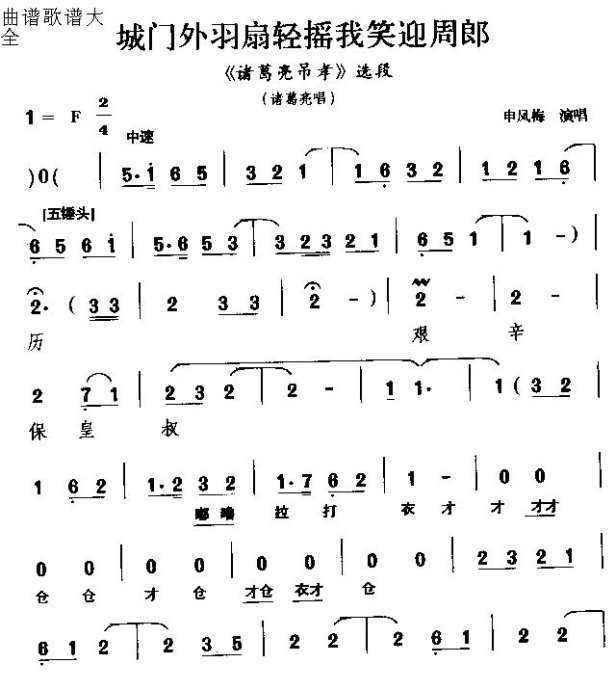 曲谱歌谱大全
城门外羽扇轻摇我笑迎周郎
《诸葛亮吊孝》选段
(诸葛亮唱)
1 = F 2/4
申凤梅 演唱
中速
)0( | 5·i 6 5 | 3 2 1 | 1 6 3 2 | 1 2 1 6 |
[五锤头]
6 5 6 i | 5·6 5 3 | 3 2 3 2 1 | 6 5 1 | 1 - ) |
2· ( 3 3 | 2 3 3 | 2 - ) | 2 - | 2 - |
历 艰 辛
2 7 1 | 2 3 2 | 2 - | 1 1· | 1 ( 3 2 |
保 皇 叔
1 6 2 | 1·2 3 2 | 1·7 6 2 | 1 - | 0 0 |
嘟 噜 拉 打 衣 才 才 才才
0 0 | 0 0 | 0 0 | 0 0 | 2 3 2 1 |
仓 仓 才 仓 才仓 衣才 仓
6 1 2 | 2 3 5 | 2 2 | 2 6 1 | 2 2 |